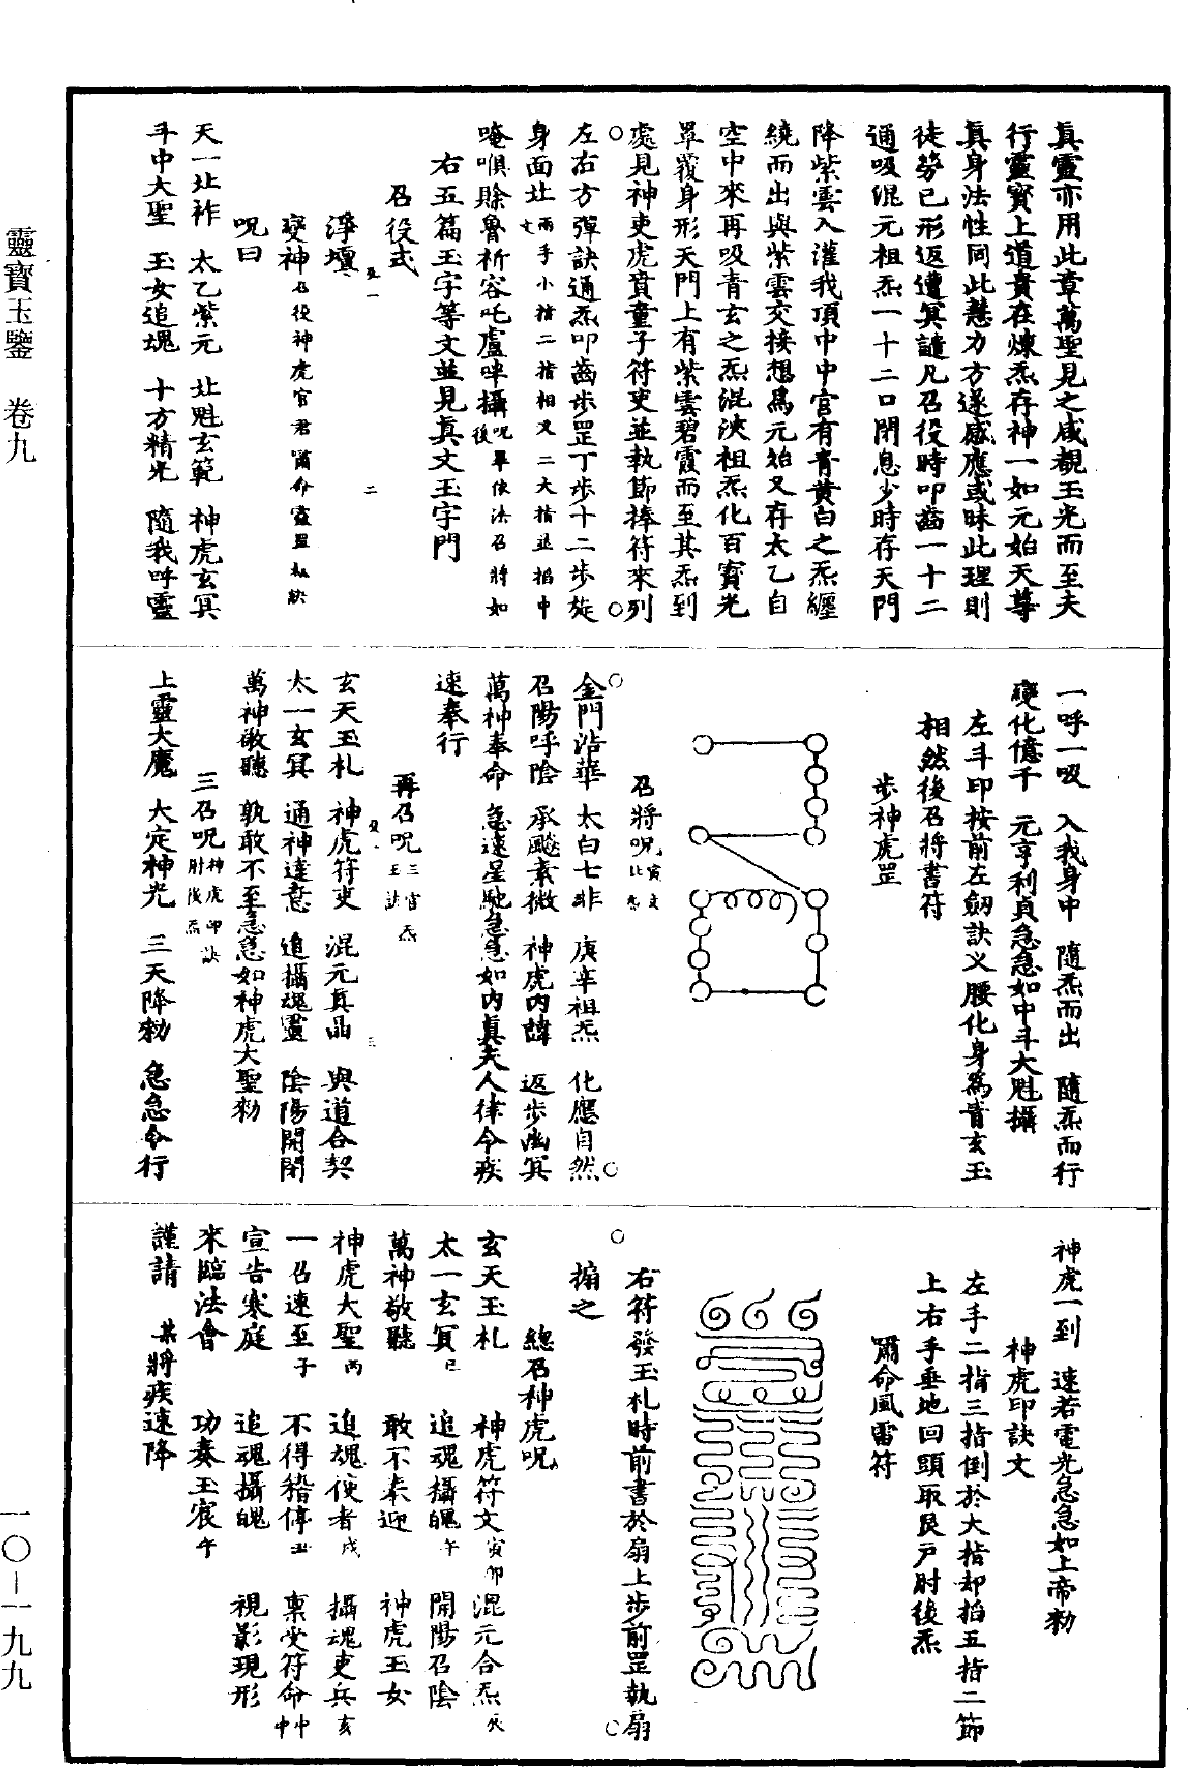 真靈亦用此章萬聖見之咸覩玉光而至夫
行靈寶上道貴在煉炁存神一如元始天尊
真身法性同此慧力方遂感應或昧此理則
徒勞已形返遭冥譴凡召役時叩齒一十二
通吸混元祖炁一十二口閉息少時存天門
降紫雲入灌我頂中中宮有青黃白之炁纏
繞而出與紫雲交接想為元始又存太乙自
空中來再吸青玄之炁混泱祖炁化百寶光
罩覆身形天門上有紫雲碧霞而至其炁到
處見神吏虎賁童子符吏並執節捧符來列
左右方彈訣通炁叩齒步罡丁步十二步旋
身面北兩手小指二指相叉二大指並掐中文
唵唄賒魯祈容吒盧呯攝呪畢依法召將如後
右五篇玉字等文並見真文玉字門
召役式
淨壇
變神召役神虎官君嚼命靈罡
呪曰
天一北祚　太乙紫元　北魁玄範　神虎玄冥
斗中大聖　玉女追魂　十方精光　隨我呼靈
一呼一吸　入我身中　隨炁而出　隨炁而行
變化億千　元亨利貞急急如中斗大魁攝
左斗印按前左劒訣义腰化身為青玄玉
相然後召將書符
步神虎罡
召將呪
金門浩華　太白七非　庚辛祖炁　化應自然
召陽呼陰　承飈素微　神虎內諱　返步幽冥
萬神奉命　急速星馳急急如內真夫人律令疾
速奉行
再召呪三官炁
玄天玉札　神虎符吏　混元真晶　與道合契
太一玄冥　通神達意　追攝魂靈　陰陽開閉
萬神敬聽　孰敢不至急急如神虎大聖勑
三召呪神虎印訣肘後炁
上靈大魔　大定神光　三天降勑　急急令行
神虎一到　速若電光急急如上帝勑
神虎印訣文
左手二指三指倒於大指却掐五指二節
上右手垂地回頭取艮戶肘後炁
嚼命風雷符
右符發玉札時前書於扇上步前罡執扇
搧之
總召神虎呪
玄天玉札　神虎符文寅卯　混元合炁辰
太一玄冥巳　追魂攝魄午　開陽召陰
萬神敬聽　敢不奉迎　神虎玉女
神虎大聖丙　追魂使者戌　攝魂吏兵亥
一召速至子　不得稽停丑　禀受符命中
宣告寒庭　追魂攝魄　視影現形
來臨法會　功奏玉宸午
謹請　某將疾速降
靈寶玉鑒　卷九
一〇—一九九